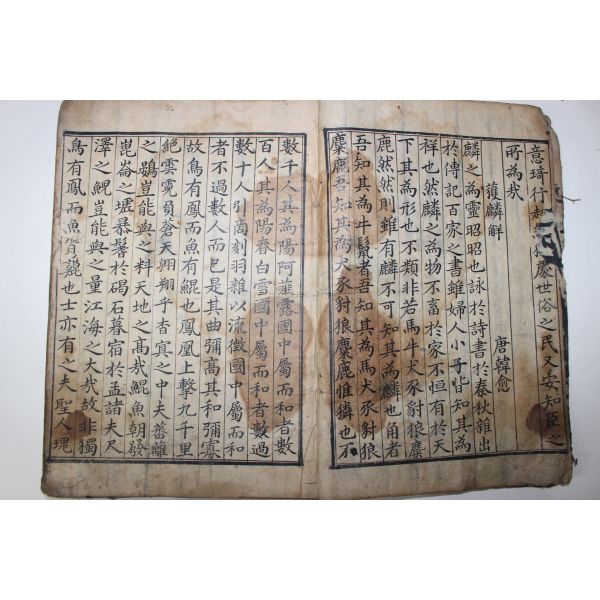 意琦行處世俗之民又安知臣之
所為哉
獲麟解 唐韓愈
麟之為靈昭昭也詠於詩書於春秋雜出
於傳記百家之書雖婦人小子皆知其為
祥也然麟之為物不畜於家不恒有於天
下其為形也不類非若馬牛犬豕豺狼麋
鹿然然則雖有麟不可知其為麟也角者
吾知其為牛鬣者吾知其為馬犬豕豺狼
麋鹿吾知其為犬豕豺狼麋鹿惟麟也不
數千人其為陽阿薤露國中屬而和者數
百人其為陽春白雪國中屬而和者數過
數十人引商刻羽雜以流徵國中屬而和
者不過數人而已是其曲彌高其和彌寡
故鳥有鳳而魚有鯤也鳳凰上擊九千里
絕雲霓負蒼天翱翔乎杳冥之中夫蕃籬
之鷃豈能與之料天地之高哉鯤魚朝發
崑崙之墟暴鬐於碣石暮宿於孟諸夫尺
澤之鯢豈能與之量江海之大哉故非獨
鳥有鳳而魚有鯤也士亦有之夫聖人瑰